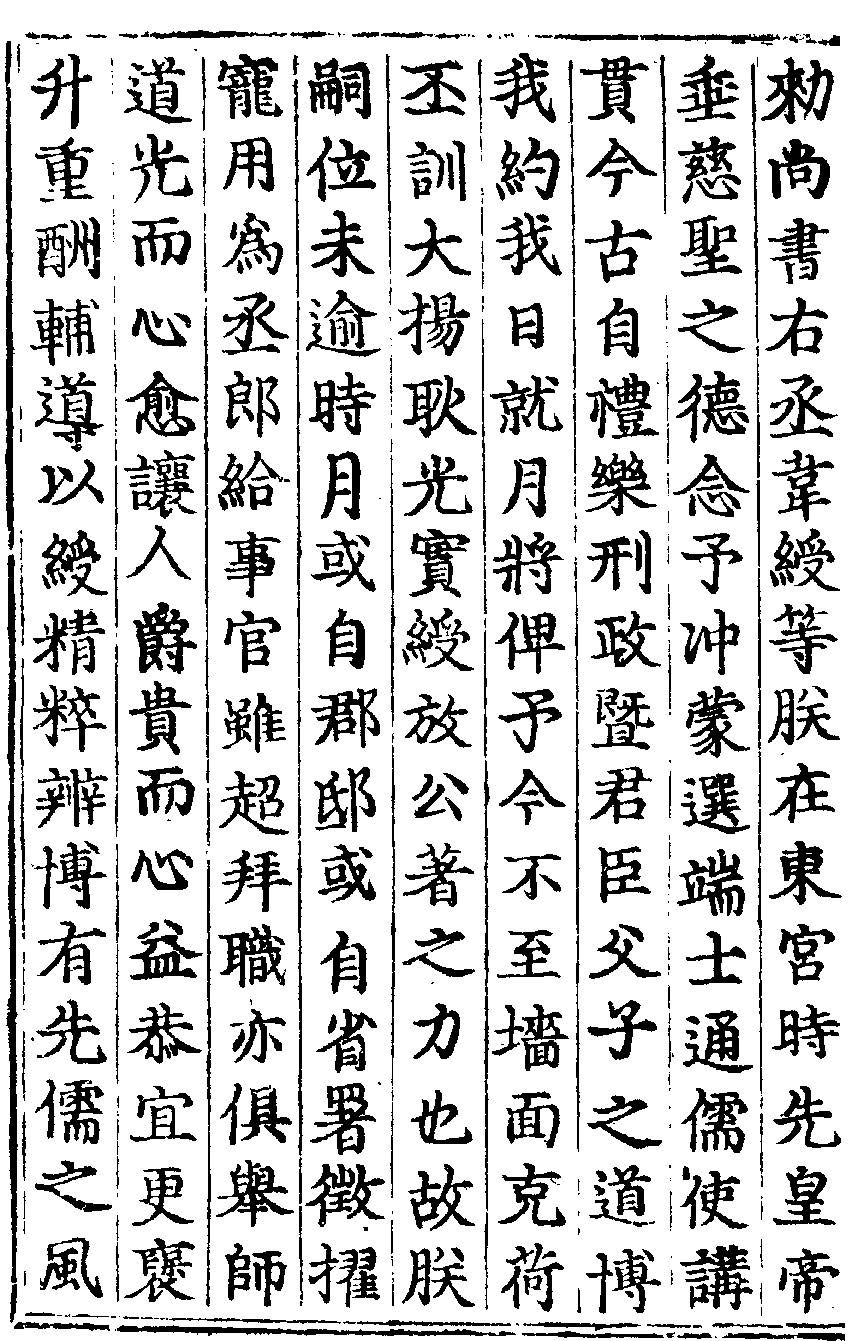 勑尚書右丞韋綬等朕在東宮時先皇帝
垂慈聖之德念予冲蒙選端士通儒使講
貫今古自禮樂刑政暨君臣父子之道博
我約我日就月將俾予今不至墻面克荷
丕訓大揚耿光實綬放公著之力也故朕
嗣位未逾時月或自郡邸或自省署徵擢
寵用爲丞郎給事官雖超拜職亦俱舉師
道光而心愈讓人爵貴而心益恭宜更襃
升重酬輔導以綬精粹辨博有先儒之風